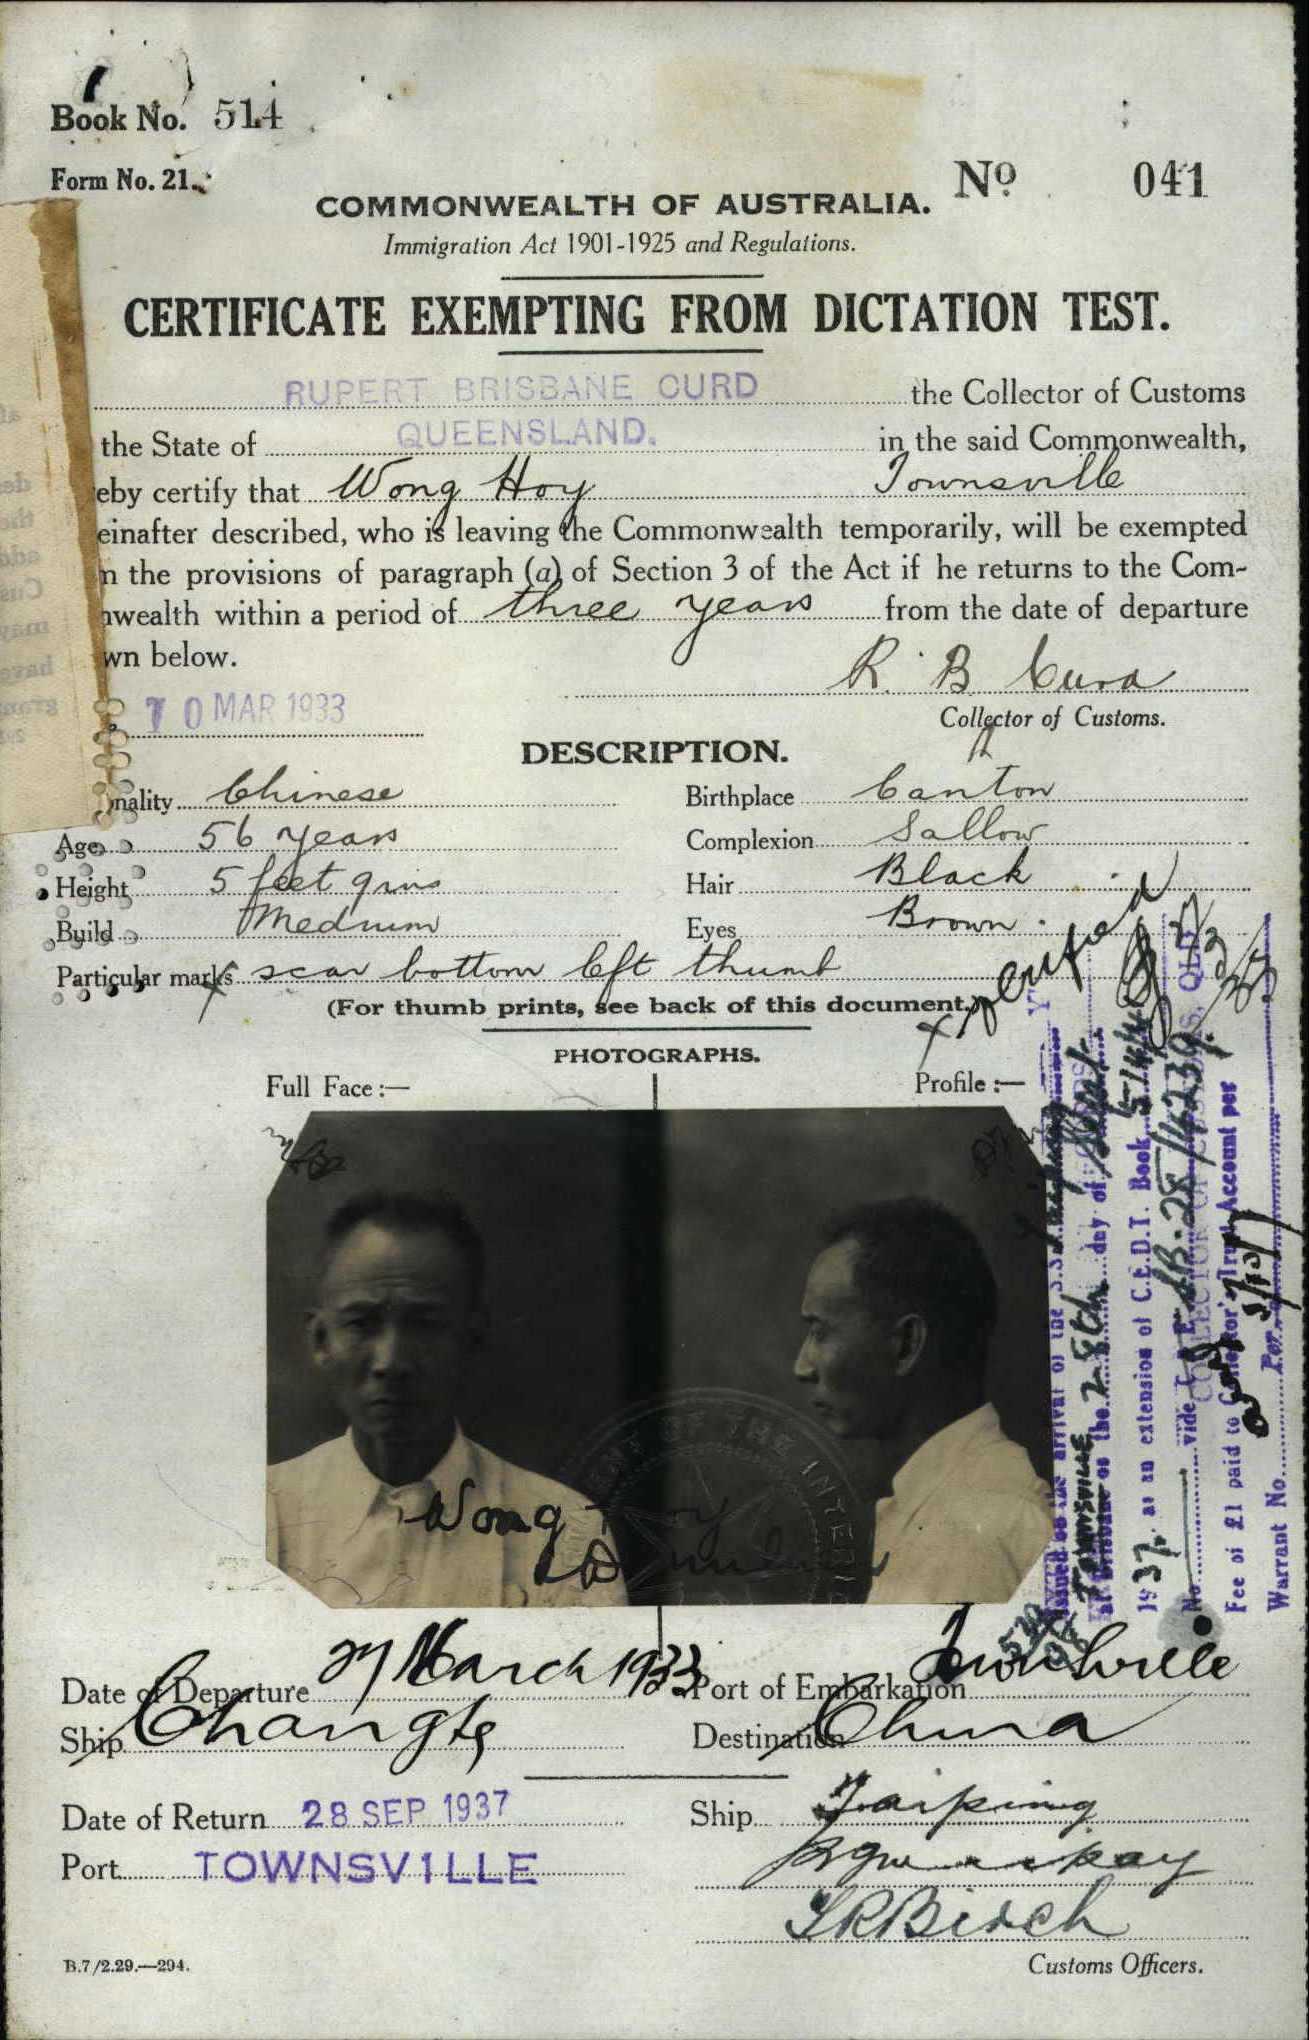 Book No. 514
Form No. 21.
No 041
COMMONWEALTH OF AUSTRALIA.
Immigration Act 1901-1925 and Regulations.
CERTIFICATE EXEMPTING FROM DICTATION TEST.
RUPERT BRISBANE CURD the Collector of Customs
the State of QUEENSLAND. in the said Commonwealth,
eby certify that Wong Hoy Townsville
einafter described, who is leaving the Commonwealth temporarily, will be exempted
the provisions of paragraph (a) of Section 3 of the Act if he returns to the Com-
wealth within a period of three years from the date of departure
wn below.
R. B. Curd
10 MAR 1933
Collector of Customs.
DESCRIPTION.
nality Chinese Birthplace Canton
Age 56 years Complexion Sallow
Height 5 feet 9 ins Hair Black
Build Medium Eyes Brown
Particular marks scar bottom left thumb
(For thumb prints, see back of this document.)
verified
PHOTOGRAPHS.
Full Face :— Profile :—
Wong Hoy
arrival of the S.S. Taiping
TOWNSVILLE the 28th day of Sept
1937. as an extension of C.E.D.T. Book 514/41
No. vide
COLLECTOR OF CUSTOMS, QLD
Fee of £1 paid to Collector's Trust Account per
Warrant No. Per
Date of Departure 27 March 1933 Port of Embarkation Townsville
Ship Changte Destination China
Date of Return 28 SEP 1937 Ship Taiping
Port TOWNSVILLE
Birch
B.7/2.29.—294. Customs Officers.